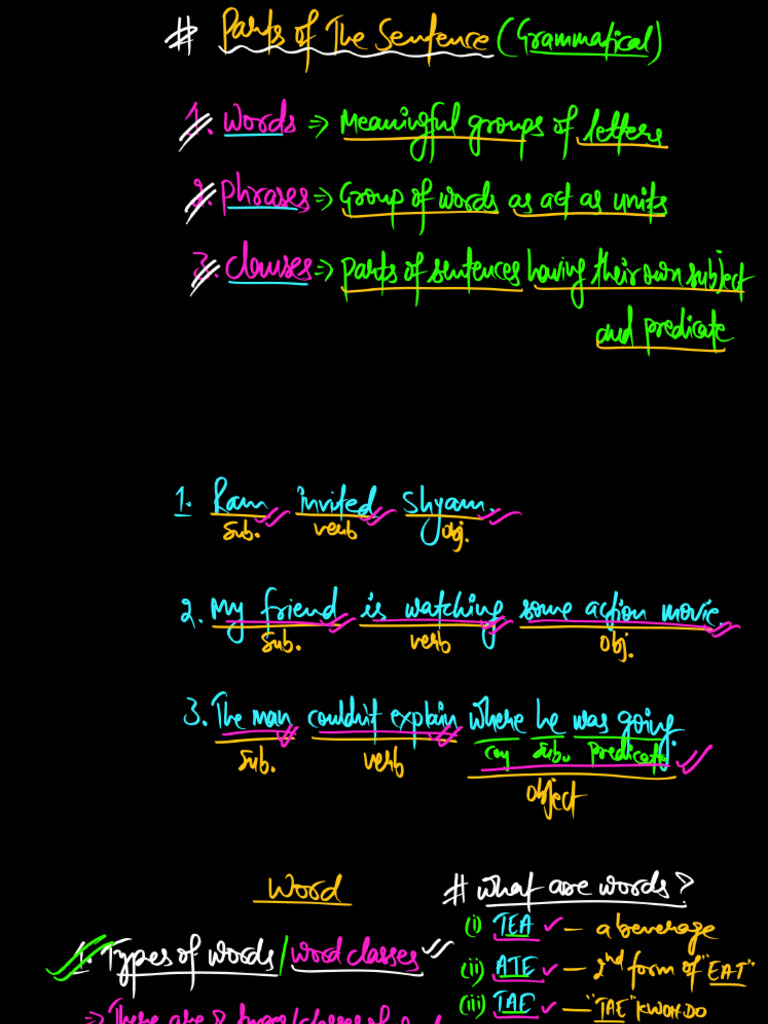 # Parts of The Sentence (Grammatical)
1. Words ⇒ Meaningful groups of letters
2. Phrases ⇒ Group of words as act as units
3. Clauses ⇒ Parts of sentences having their own subject
and predicate
1. Ram invited Shyam.
Sub. verb obj.
2. My friend is watching some action movie.
Sub. verb obj.
3. The man couldn't explain where he was going.
conj sub. predicate
Sub. verb object
Word
1. Types of words / word classes
# What are words?
(i) TEA – a beverage
(ii) ATE – 2nd form of "EAT"
(iii) TAE – "TAE" KWON DO
⇒ There are 8 types/classes of